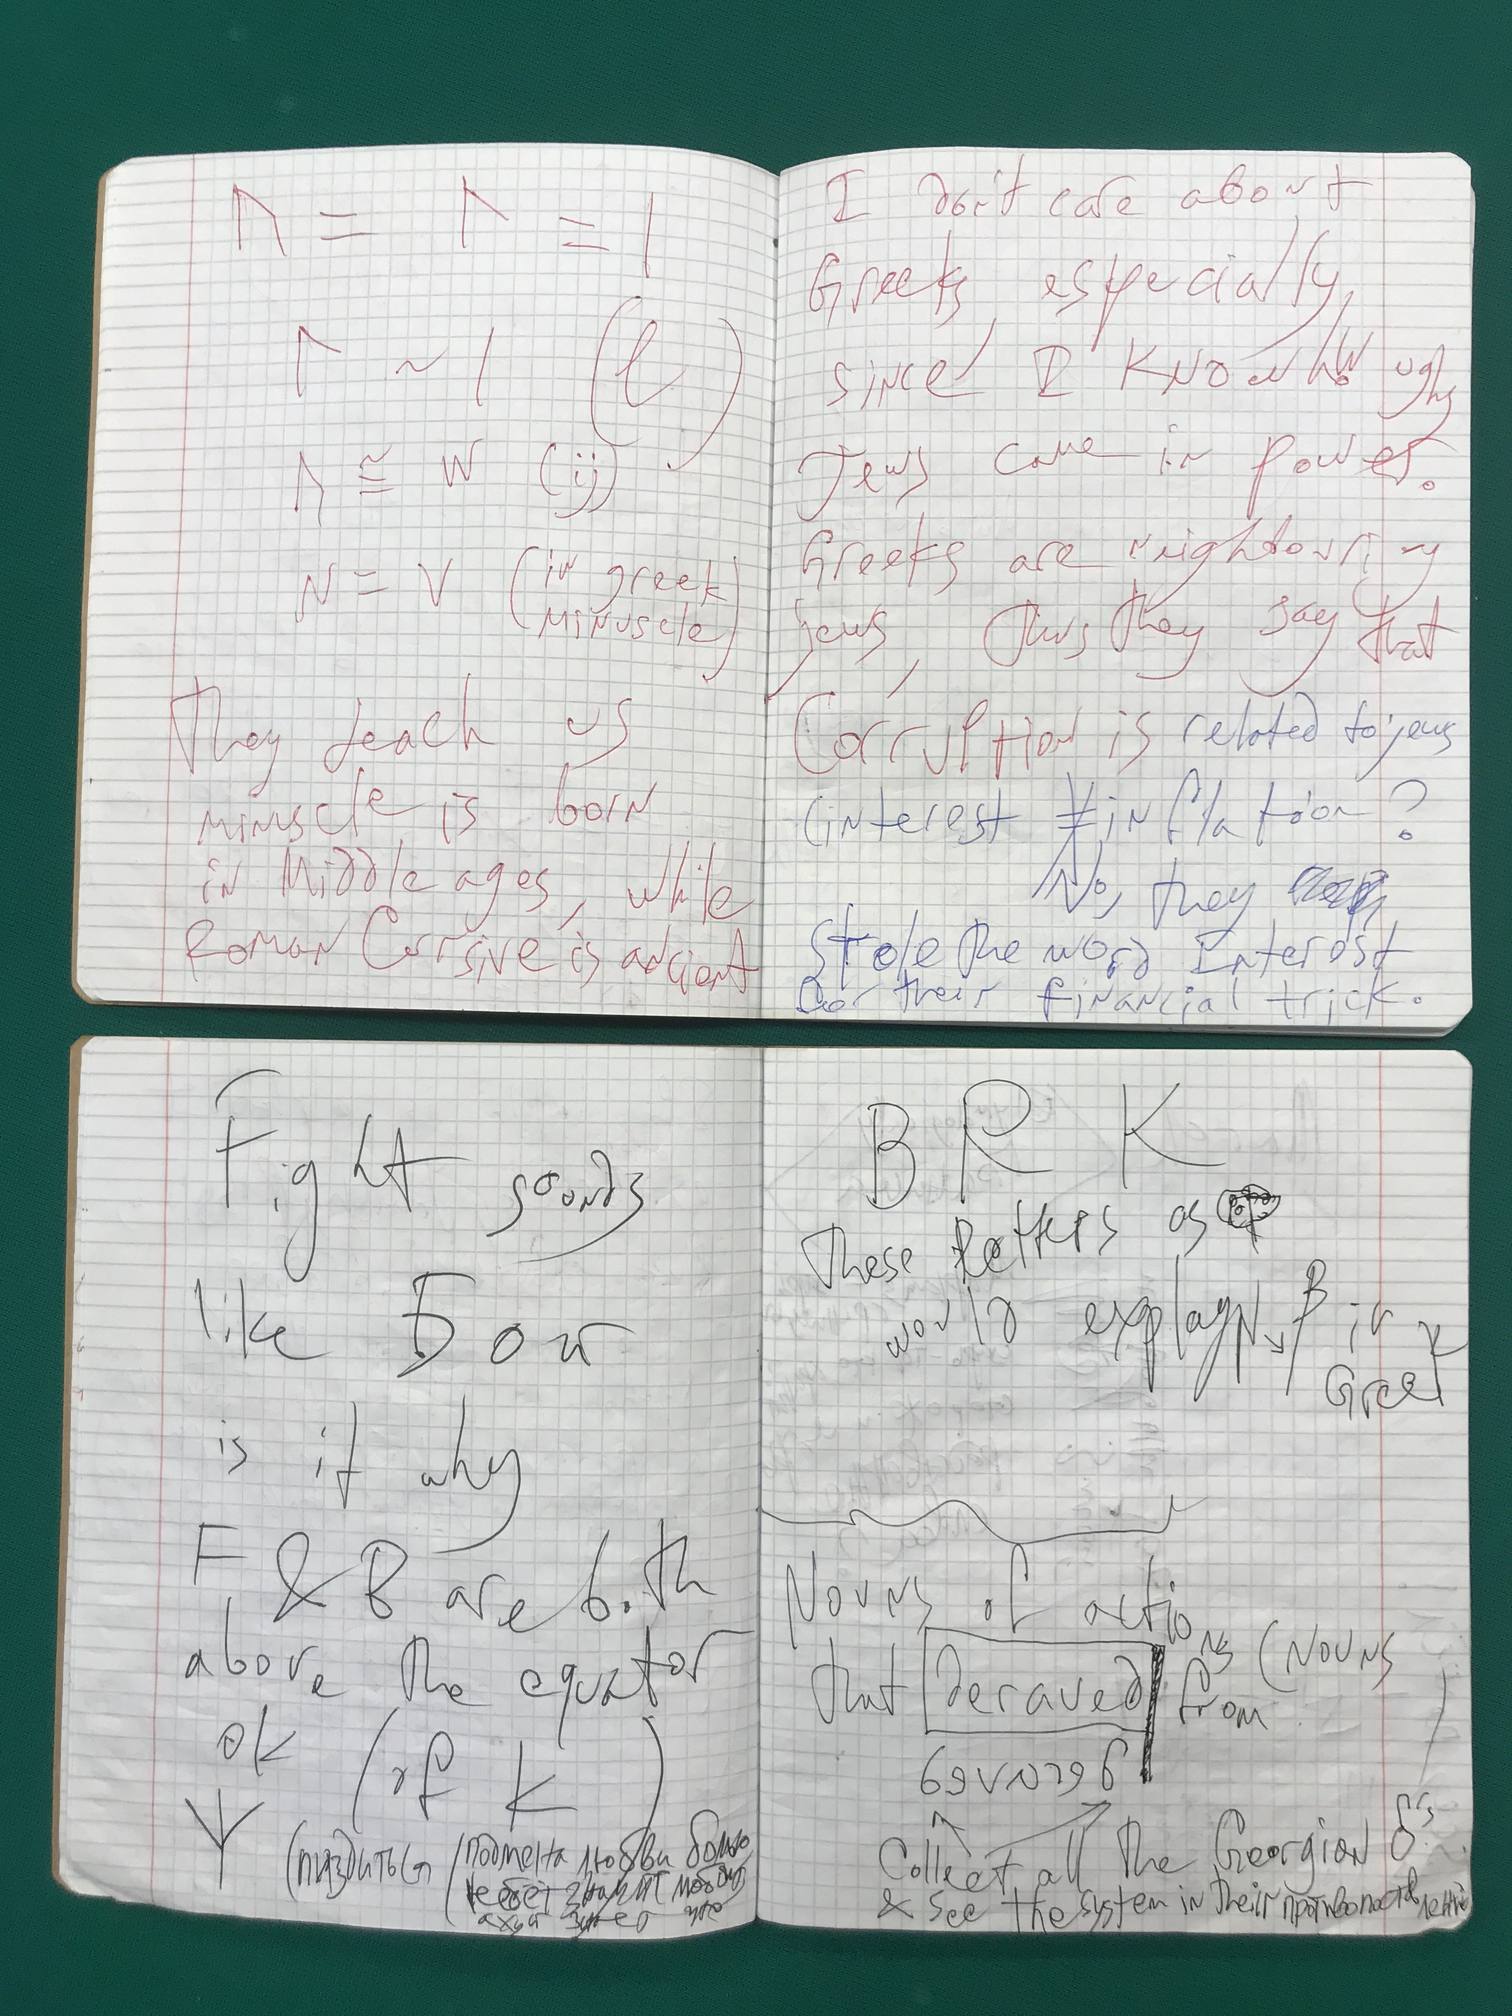 Λ = Λ = l
Γ ~ l (l)
Λ ≅ W (ij)
N = V (in greek
minuscle)
They teach us
minuscle is born
in Middle ages, while
Roman Cursive is ancient
I don't care about
Greeks especially,
since I know how ugly
Jews came in power.
Greeks are neighbouring
jews, thus they say that
Corruption is related to jews
(interest ≠ inflation?
No, they
Stole the word Interest
for their financial trick.
Fight sounds
like Бои
is it why
F & B are both
above the equator
ok (of K)
Ψ (пиздиться / подмена любви болью
не бьёт значит не любит
B R K
These letters as
would explayn β in
Greek
Nouns of actions (Nouns
that deraved from
Collect all the Georgian δ's
& see the system in their противопоставлении